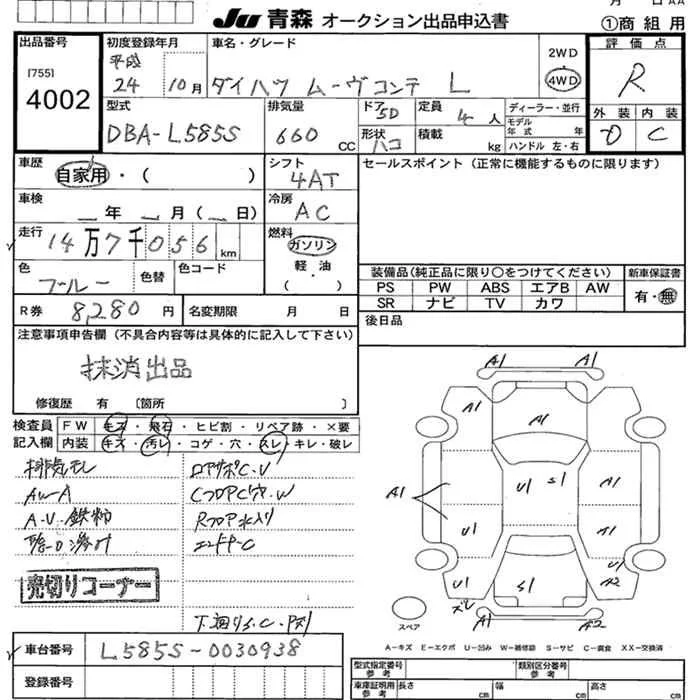 月 日 AA
JU 青森 オークション出品申込書
①商組用
出品番号
[755]
4002
初度登録年月
平成
24 10月
車名・グレード
ダイハツ ムーヴコンテ L
2WD
4WD
評価点
R
外装 内装
D C
型式
DBA-L585S
排気量
660 CC
ドア 5D
形状 ハコ
定員 4人
積載 kg
ディーラー・並行
モデル年式 年式
ハンドル 左・右
車歴
自家用・( )
シフト
4AT
セールスポイント(正常に機能するものに限ります)
車検
年 月( 日)
冷房
AC
走行
14万7千056km
燃料
ガソリン
軽・油
( )
色
ブルー
色替
色コード
装備品(純正品に限り○をつけてください)
新車保証書
PS PW ABS エアB AW
SR ナビ TV カワ
有・無
R券 8,280円
名変期限 月 日
後日品
注意事項申告欄(不具合内容等は具体的に記入して下さい)
抹消出品
修復歴 有〔箇所 〕
検査員記入欄
FW キズ・飛石・ヒビ割・リペア跡・×要
内装 キズ・汚レ・コゲ・穴・スレ・キレ・破レ
排気モレ
AW-A
A・V・鉄粉
ロアサポC・V
CフロアC穴・W
Rフロア水入り
エンドP-C
売切りコーナー
下廻りS.C・P刻
A1 A1
A1 A1
A1 U1 S1 A1
U1 A1
U1 S1 U1 A2
ズレ A1 A2
スペア
A-キズ E-エクボ U-凹み W-補修跡 S-サビ C-腐食 XX-交換済
車台番号
L585S-0030938
登録番号
型式指定番号 参考
類別区分番号 参考
車庫証明用 参考
長さ cm 幅 cm 高さ cm